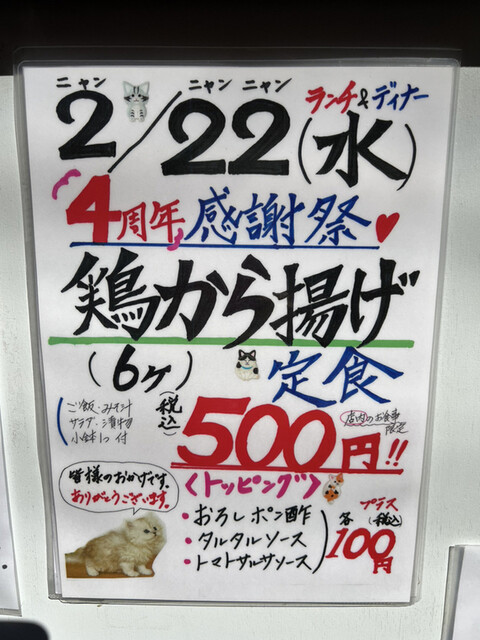 ニャン ニャン ニャン
2/22(水)
ランチ&ディナー
4周年感謝祭
鶏から揚げ
(6ヶ)
定食
ご飯・みそ汁
サラダ・漬物
小鉢1つ 付
(税込)
500円!!
店内のお食事
限定
皆様のおかげです。
ありがとうございます。
<トッピング>
・おろしポン酢
・タルタルソース
・トマトサルサソース
各
プラス
(税込)
100円